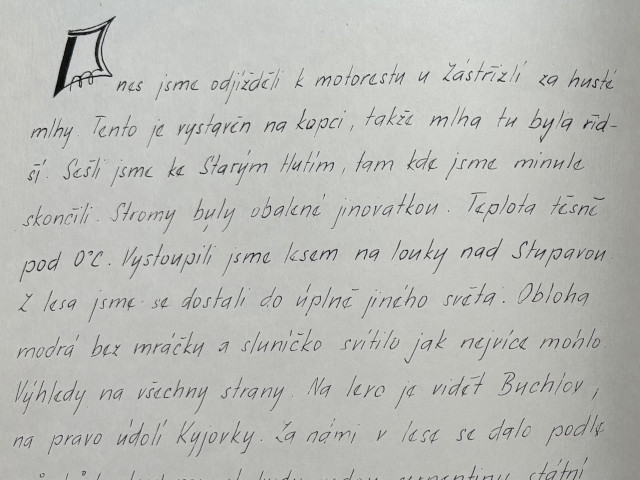 Dnes jsme odjížděli k motorestu u Zástřizlí za husté
mlhy. Tento je vystavěn na kopci, takže mlha tu byla říd-
ší. Sešli jsme ke Starým Hutím, tam kde jsme minule
skončili. Stromy byly obalené jinovatkou. Teplota těsně
pod 0°C. Vystoupili jsme lesem na louky nad Stupavou.
Z lesa jsme se dostali do úplně jiného světa. Obloha
modrá bez mráčku a sluníčko svítilo jak nejvíce mohlo.
Výhledy na všechny strany. Na levo je vidět Buchlov,
na pravo údolí Kyjovky. Za námi v lese se dalo podle
serpentiny státní